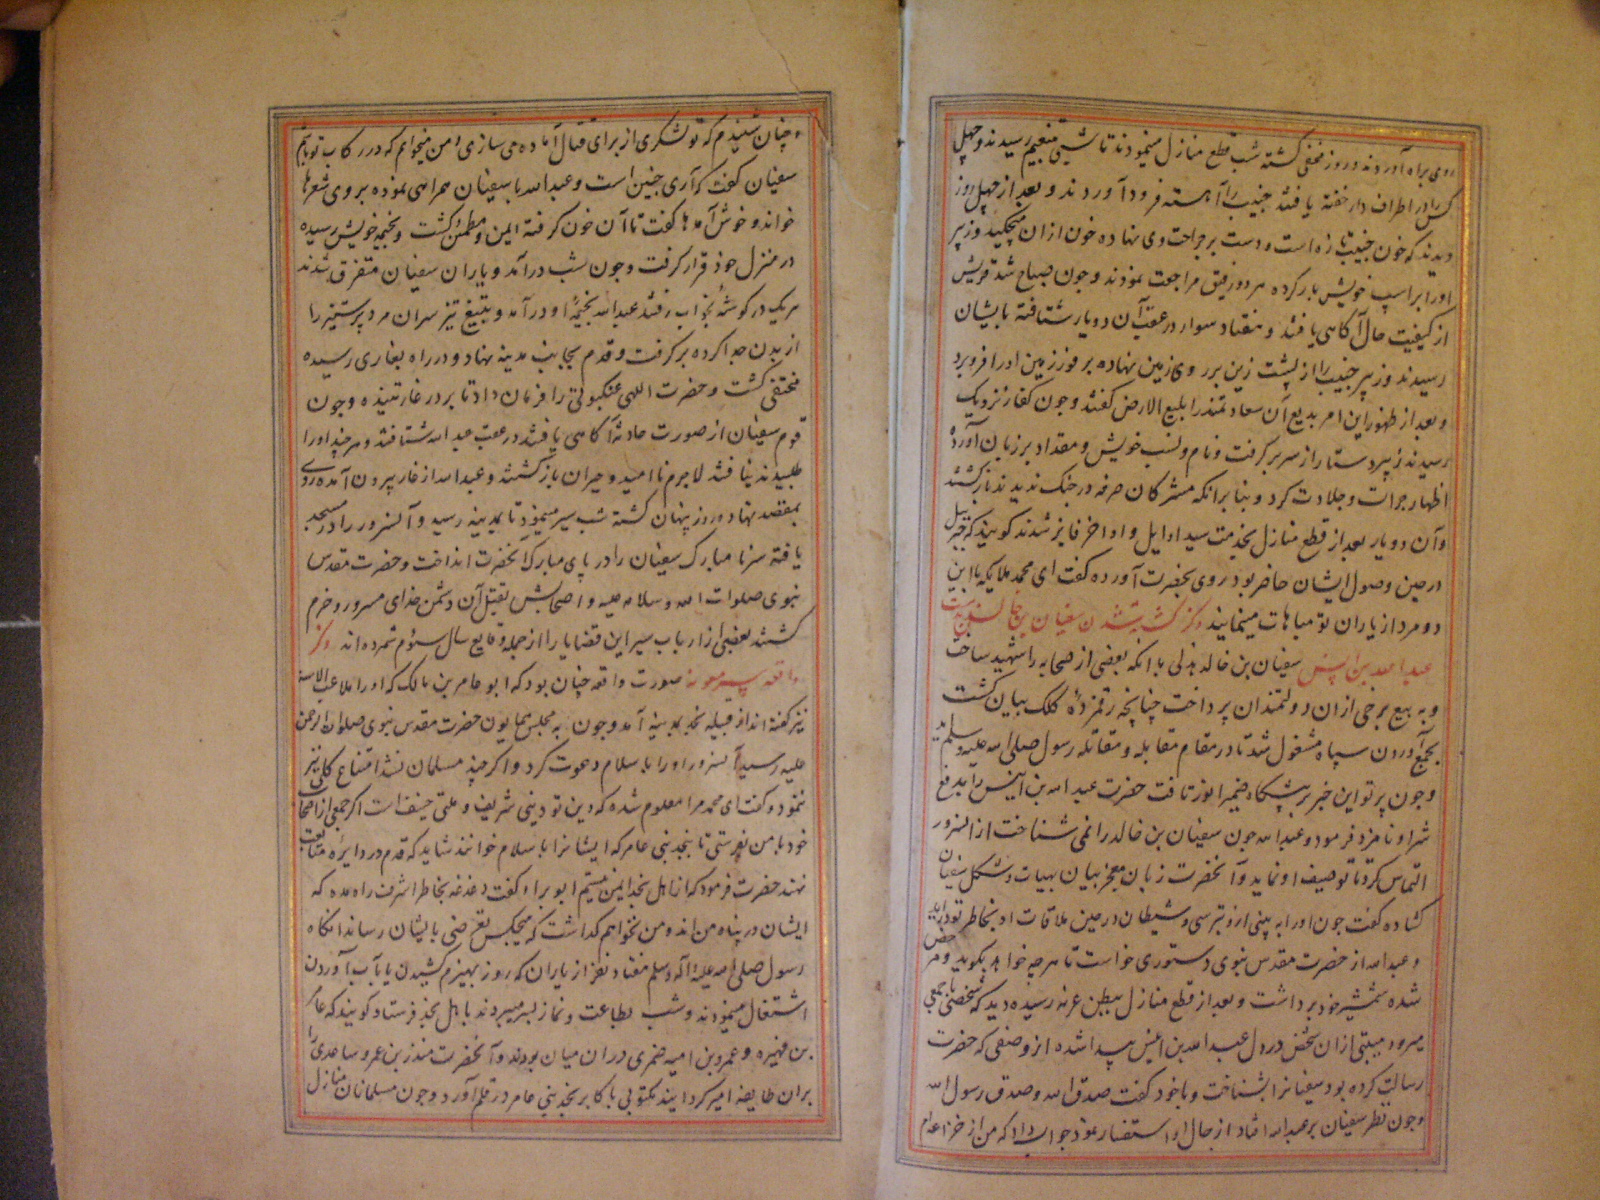 روی براه آوردند و روز مخفی گشته شب قطع منازل مینمودند تا شبی به تنعیم رسیدند و چهل
کس را در اطراف دار خفته یافتند خبیب را آهسته فرود آوردند و بعد از چهل روز
دیدند که خون خبیب تازه است و دست بر جراحت وی نهاده خون از ان میچکید و زبیر
او را بر اسپ خویش بار کرده هر دو رفیق مراجعت نمودند و چون صباح شد قریش
از کیفیت حال آگاهی یافتند و هفتاد سوار در عقب آن دو یار شتافته بایشان
رسیدند و زبیر خبیب را از پشت زین بر روی زمین نهاده بر فور زمین او را فرو برد
و بعد از ظهور این امر بدیع آن سعادتمند را بلیع الارض گفتند و چون کفار نزدیک
رسیدند زبیر دستار از سر بر گرفت و نام و نسب خویش و مقداد بر زبان آورده
اظهار جرات و جلادت کرد و بنا بر انکه مشرکان صرفه در جنک ندیدند باز گشتند
و آن دو یار بعد از قطع منازل بخدمت سید اوایل و اواخر فایز شدند گویند که جبرییل
در حین وصول ایشان حاضر بود روی بحضرت آورده گفت ای محمد ملایکه باین
دو مرد از یاران تو مباهات مینمایند ذکر کشته شدن سفیان بن خالد بدست
عبدالله بن انیس سفیان بن خالد هذلی با انکه بعضی از صحابه را شهید ساخت
و به بیع برخی از ان دولتمندان پرداخت چنانچه رقمزدهٔ کلک بیان گشت
بجمع آوردن سپاه مشغول شد تا در مقام مقابله و مقاتله رسول صلی الله علیه و سلم آید
و چون پرتو این خبر بر پیشگاه ضمیر انور تافت حضرت عبدالله بن انیس را بدفع
شر او نامزد فرمود و عبدالله چون سفیان بن خالد را نمی شناخت از انسرور
التماس کرد تا توصیف او نماید و آنحضرت زبان معجز بیان بهیات و شکل سفیان
گشاده گفت چون او را به بینی از و بترسی و شیطان در حین ملاقات او بخاطر تو در آید
و عبدالله از حضرت مقدس نبوی دستوری خواست تا هر چه خواهد بگوید و مرخص
شده شمشیر خود بر داشت و بعد از قطع منازل ببطن عرنه رسیده دید که شخصی با جمعی
میرود هیبتی از ان شخص در دل عبدالله بن انیس پیدا شده از وصفی که حضرت
رسالت کرده بود سفیانرا بشناخت و با خود گفت صدق الله و صدق رسول الله
و چون نظر سفیان بر عبدالله افتاد از حال او استفسار نمود جواب داد که من از خزاعه ام
و چنان شنیدم که تو لشکری از برای قتال آماده می سازی و من میخواهم که در رکاب تو باشم
سفیان گفت که آری چنین است و عبدالله با سفیان همراهی نموده بر وی شعرها
خواند و خوش آمدها گفت تا آن خون گرفته ایمن و مطمئن گشت و بخیمه خویش رسیده
در منزل خود قرار گرفت و چون شب در آمد و یاران سفیان متفرق شدند
هر یک در گوشهٔ بخواب رفتند عبدالله بخیمهٔ او در آمد و بتیغ تیز سر ان مرد پر ستیز را
از بدن جدا کرده بر گرفت و قدم بجانب مدینه نهاد و در راه بغاری رسیده
مختفی گشت و حضرت الهی عنکبوتی را فرمان داد تا بر در غار تنیده و چون
قوم سفیان از صورت حادثه آگاهی یافتند در عقب عبدالله شتافتند و هر چند او را
طلبیدند نیافتند لاجرم نا امید و حیران باز گشتند و عبدالله از غار بیرون آمده روی
بمقصد نهاد و روز پنهان گشته شب سیر مینمود تا بمدینه رسید و آنسرور را در مسجد
یافته سر نا مبارک سفیان را در پای مبارک آنحضرت انداخت و حضرت مقدس
نبوی صلوات الله و سلامه علیه و اصحابش بقتل آن دشمن خدای مسرور و خرم
گشتند بعضی از ارباب سیر این قضایا را از جمله وقایع سال سئوم شمرده اند ذکر
واقعه بیر معونه صورت واقعه چنان بود که ابو عامر بن مالک که او را ملاعب الاسنه
نیز گفته اند از قبیله نجد بمدینه آمد و چون به مجلس همایون حضرت مقدس نبوی صلوات الرحمن
علیه رسید آنسرور او را باسلام دعوت کرد و اگر چه مسلمان نشد امتناع کلی نیز
ننمود و گفت ای محمد مرا معلوم شده که دین تو دینی شریف و ملتی حنیف است اگر جمعی از اصحاب
خود با من بفرستی تا بنجد بنی عامر که ایشانرا باسلام خوانند شاید که قدم در دایره متابعت
نهند حضرت فرمود که از اهل نجد ایمن نیستم ابو براء گفت دغدغه بخاطر اشرف راه مده که
ایشان در پناه من اند و من نخواهم گذاشت که هیچکس تعرضی بایشان رساند انگاه
رسول صلی الله علیه و آله و سلم هفتاد نفر از یاران که روز بهیزم کشیدن یا بآب آوردن
اشتغال مینمودند و شب بطاعت و نماز بسر میبردند باهل نجد فرستاد گویند که عامر
بن فهیره و عمرو بن امیه ضمری در ان میان بودند و آنحضرت منذر بن عمرو ساعدی را
بران طایفه امیر گردانید و مکتوبی باکابر نجد و بنی عامر در قلم آورد و چون مسلمانان منازل